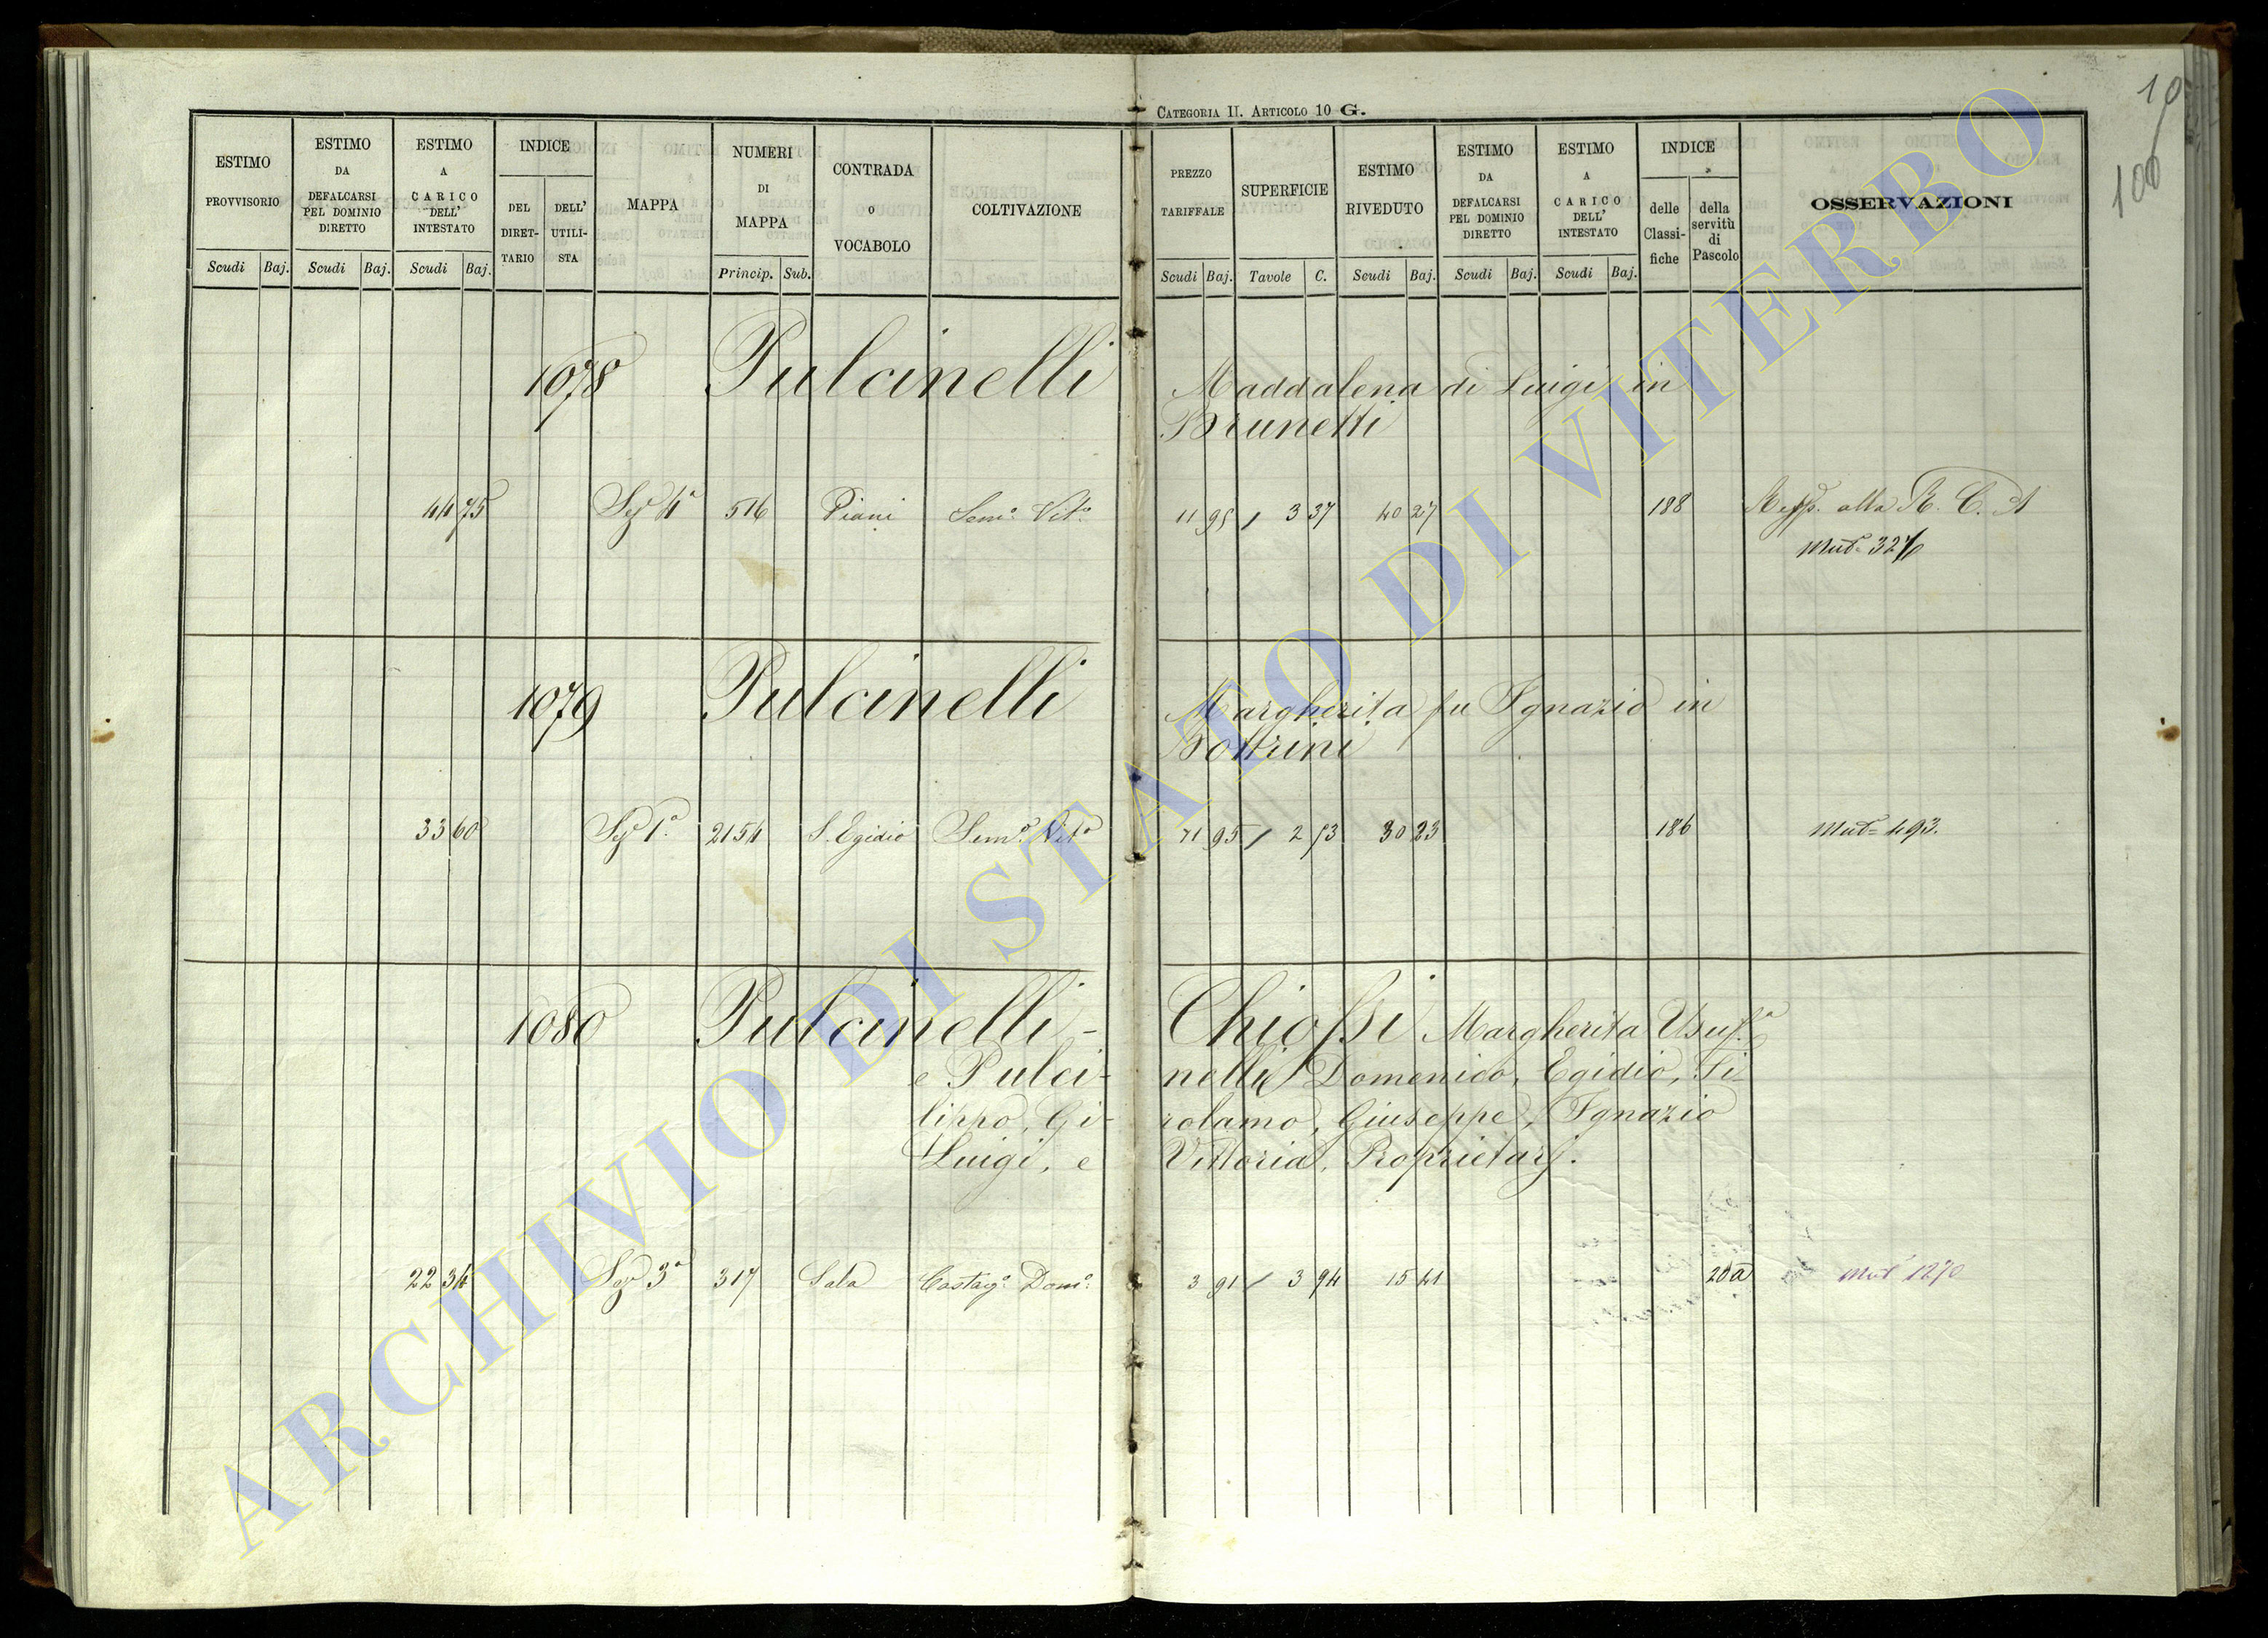 CATEGORIA II. ARTICOLO 10 G.
10
100
ESTIMO PROVVISORIO Scudi Baj.
ESTIMO DA DEFALCARSI PEL DOMINIO DIRETTO Scudi Baj.
ESTIMO A CARICO DELL' INTESTATO Scudi Baj.
INDICE DEL DIRETTARIO DELL' UTILISTA
MAPPA
NUMERI DI MAPPA Princip. Sub.
CONTRADA O VOCABOLO
COLTIVAZIONE
PREZZO TARIFFALE Scudi Baj.
SUPERFICIE Tavole C.
ESTIMO RIVEDUTO Scudi Baj.
ESTIMO DA DEFALCARSI PEL DOMINIO DIRETTO Scudi Baj.
ESTIMO A CARICO DELL' INTESTATO Scudi Baj.
INDICE delle Classifiche della servitù di Pascolo
OSSERVAZIONI
1078 Pulcinelli Maddalena di Luigi in
Brunetti
44 75 Sez. 4a 516 Piani Semo Vito 11 95 / 3 37 40 27 188 alla R. C. A
Muta 326
1079 Pulcinelli Margherita fu Ignazio in
Bottrini
33 60 Sez. 1a 2154 S. Egidio Semo Vito 11 95 / 2 53 30 23 186 Muta 493.
1080 Pulcinelli - Chiossi Margherita Usufa
e Pulci- nelli Domenico, Egidio, Fi-
lippo, Gi- rolamo, Giuseppe, Ignazio
Luigi, e Vittoria, Proprietarj.
22 34 Sez. 3a 317 Sala Castago Domo 3 91 / 3 94 15 41 20 a Mut 1270
ARCHIVIO DI STATO DI VITERBO